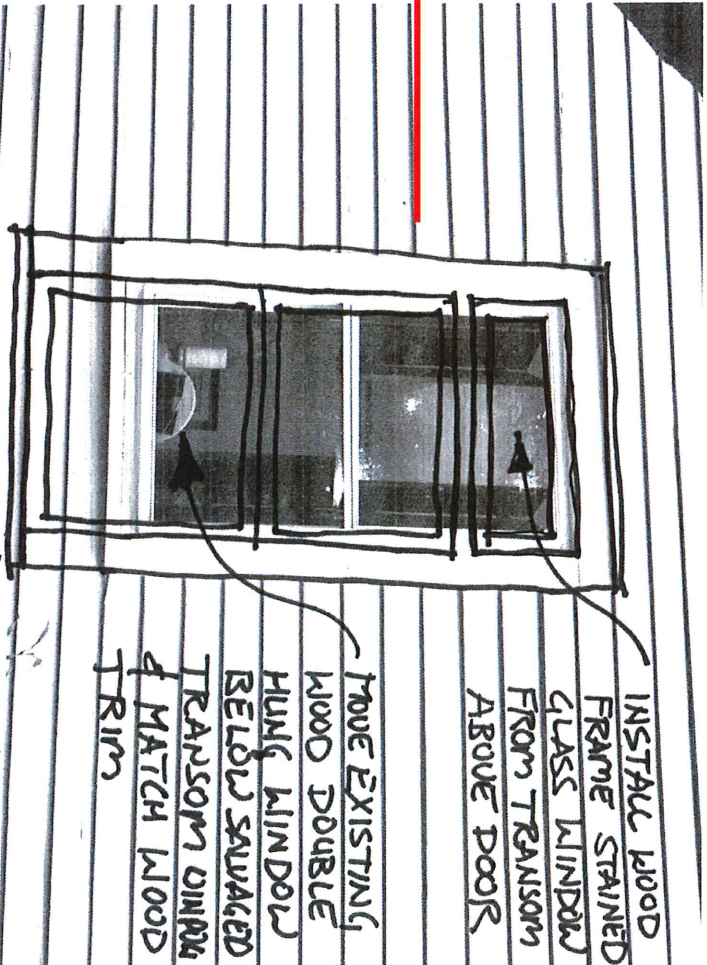 INSTALL WOOD
FRAME STAINED
GLASS WINDOW
FROM TRANSOM
ABOVE DOOR
MOVE EXISTING
WOOD DOUBLE
HUNG WINDOW
BELOW SALVAGED
TRANSOM WINDOW
& MATCH WOOD
TRIM